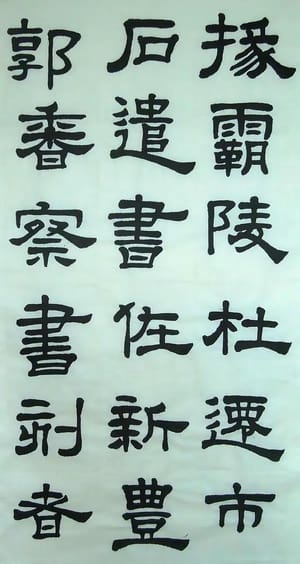 掾霸陵杜遷市
石遣書佐新豊
郭香察書刻者